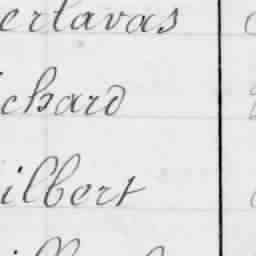 ertavas
chard
ilbert